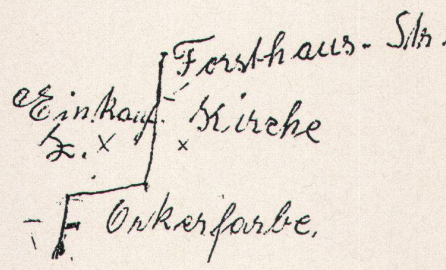 Forsthaus-Str.
Einkauf. Kirche
Z. x x
Onkerfarbe.